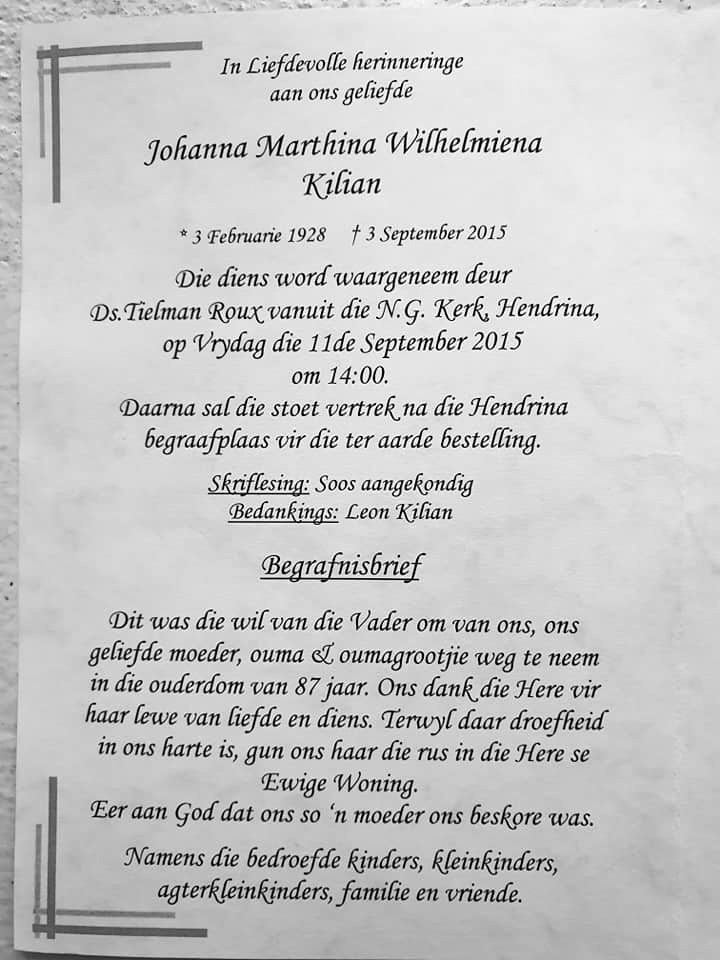 In Liefdevolle herinneringe
aan ons geliefde
Johanna Marthina Wilhelmiena
Kilian
* 3 Februarie 1928 † 3 September 2015
Die diens word waargeneem deur
Ds.Tielman Roux vanuit die N.G. Kerk, Hendrina,
op Vrydag die 11de September 2015
om 14:00.
Daarna sal die stoet vertrek na die Hendrina
begraafplaas vir die ter aarde bestelling.
Skriflesing: Soos aangekondig
Bedankings: Leon Kilian
Begrafnisbrief
Dit was die wil van die Vader om van ons, ons
geliefde moeder, ouma & oumagrootjie weg te neem
in die ouderdom van 87 jaar. Ons dank die Here vir
haar lewe van liefde en diens. Terwyl daar droefheid
in ons harte is, gun ons haar die rus in die Here se
Ewige Woning.
Eer aan God dat ons so ‘n moeder ons beskore was.
Namens die bedroefde kinders, kleinkinders,
agterkleinkinders, familie en vriende.